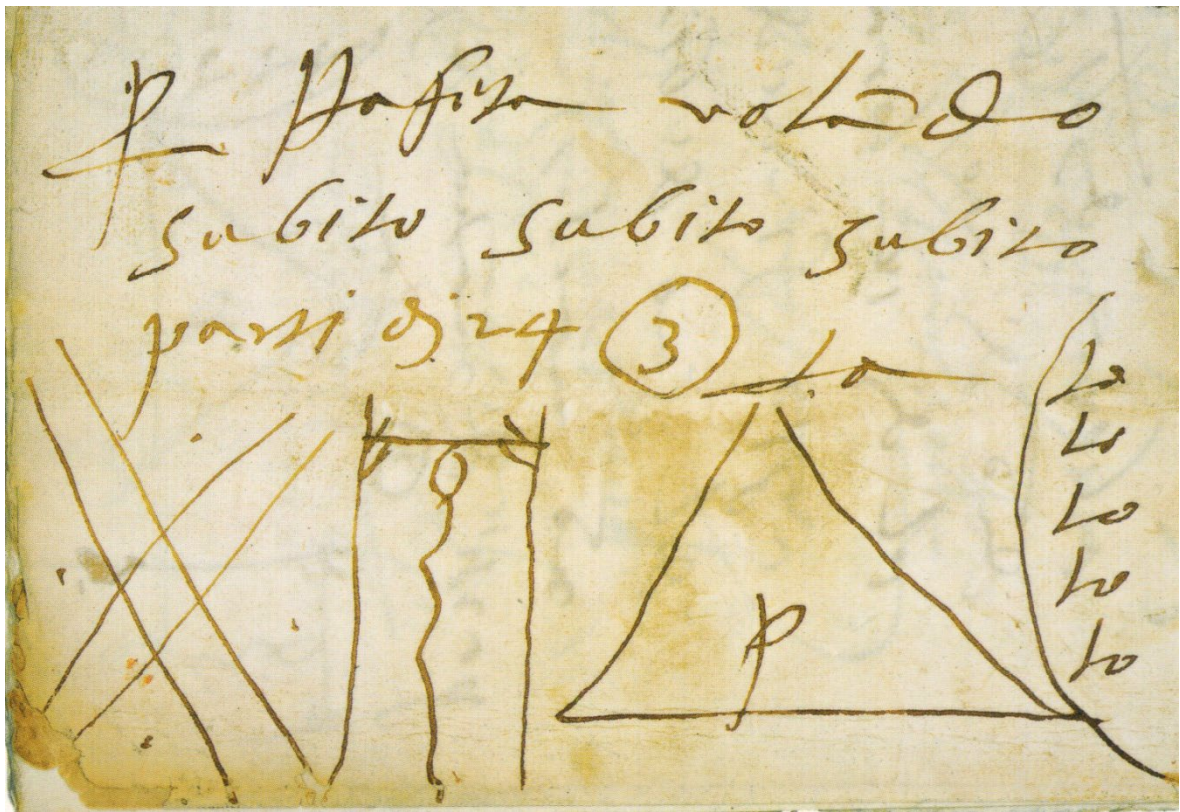 p staffeta volādo
subito subito subito
parti di 24 3
to
to
to
to
to
p